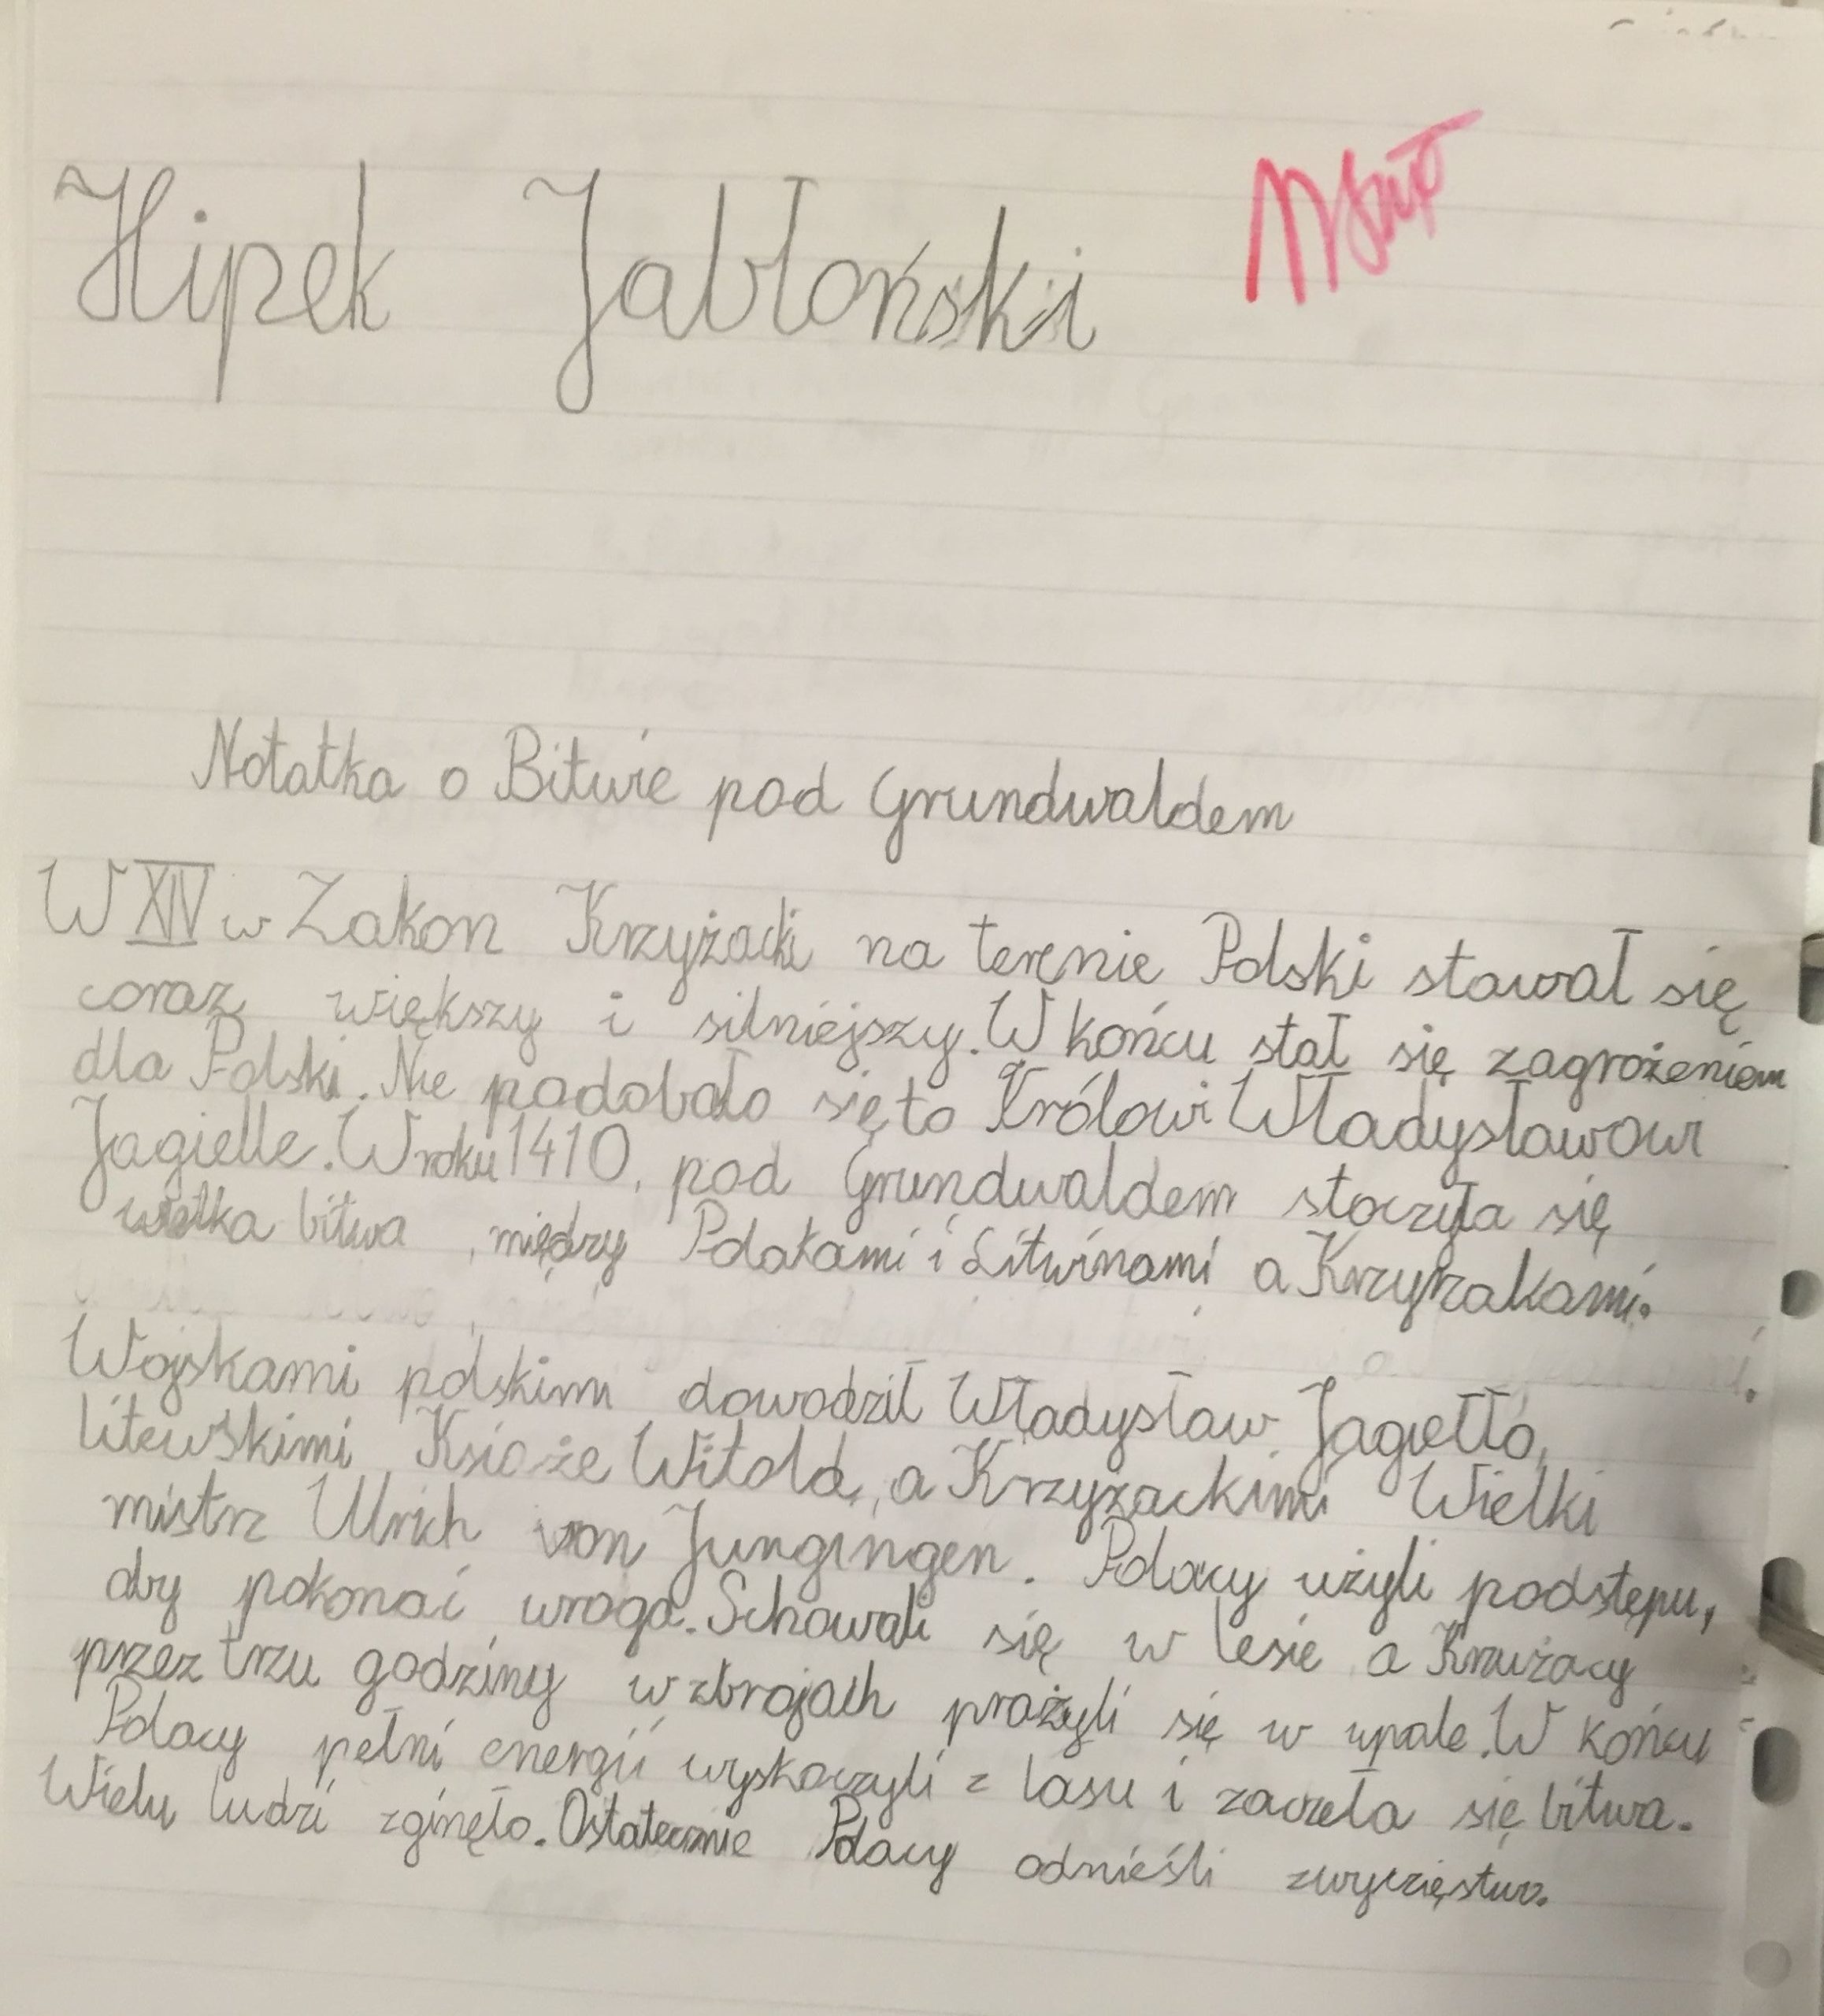 Hipek Jabłoński
Notatka o Bitwie pod Grundwaldem
W XIV w Zakon Krzyżacki na terenie Polski stawał się
coraz większy i silniejszy. W końcu stał się zagrożeniem
dla Polski. Nie podobało się to Królowi Władysławowi
Jagielle. W roku 1410, pod Grundwaldem stoczyła się
wielka bitwa, między Polakami i Litwinami a Krzyrzakami.
Wojskami polskimi dowodził Władysław Jagiełło,
litewskimi Książe Witold, a Krzyzackimi Wielki
mistrz Ulrich von Jungingen. Polacy użyli podstępu,
aby pokonać wroga. Schowali się w lesie a Krzużacy
przez trzu godziny w zbrojach prażyli się w upale. W końcu
Polacy pełni energii wyskoczyli z lasu i zaczeła się bitwa.
Wielu ludzi zginęło. Ostatecznie Polacy odnieśli zwycięstwo.